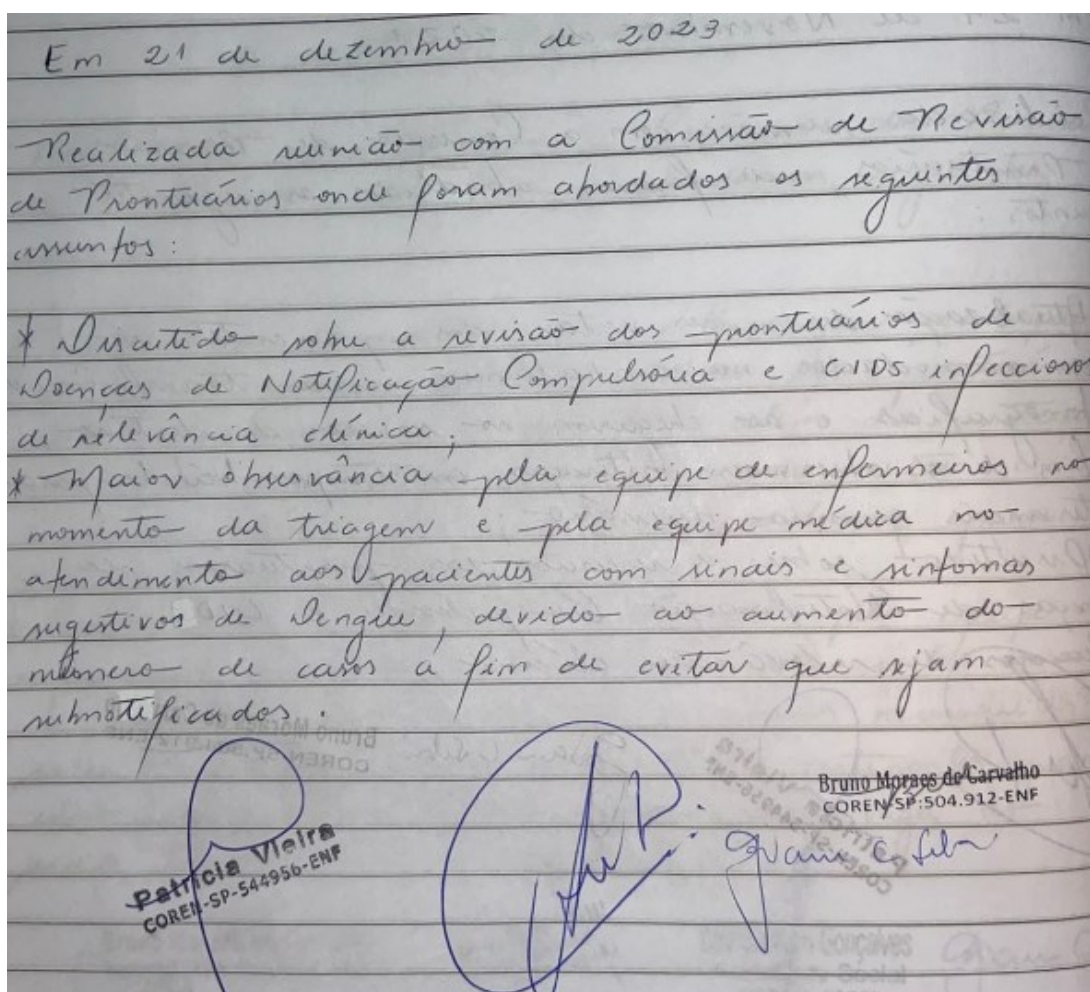 Em 21 de dezembro de 2023
Realizada reunião com a Comissão de Revisão
de Prontuários onde foram abordados os seguintes
assuntos:
* Discutido sobre a revisão dos prontuários de
Doenças de Notificação Compulsória e CIDS infecciosos
de relevância clínica;
* Maior observância pela equipe de enfermeiros no
momento da triagem e pela equipe médica no
atendimento aos pacientes com sinais e sintomas
sugestivos de Dengue, devido ao aumento do
número de casos a fim de evitar que sejam
subnotificados.
Bruno Moraes de Carvalho
COREN-SP:504.912-ENF
Patricia Vieira
COREN-SP-544956-ENF